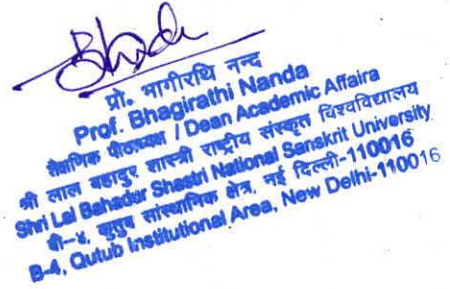 प्रो. भागीरथि नन्द
Prof. Bhagirathi Nanda
शैक्षणिक पीठाध्यक्ष / Dean Academic Affaira
श्री लाल बहादुर शास्त्री राष्ट्रीय संस्कृत विश्वविद्यालय
Shri Lal Bahadur Shastri National Sanskrit University
बी-४, कुतुब सांस्थानिक क्षेत्र, नई दिल्ली-110016
B-4, Qutub Institutional Area, New Delhi-110016